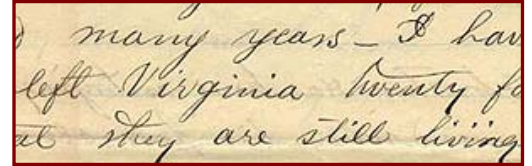 many years - I hav
left Virginia twenty fo
at they are still living